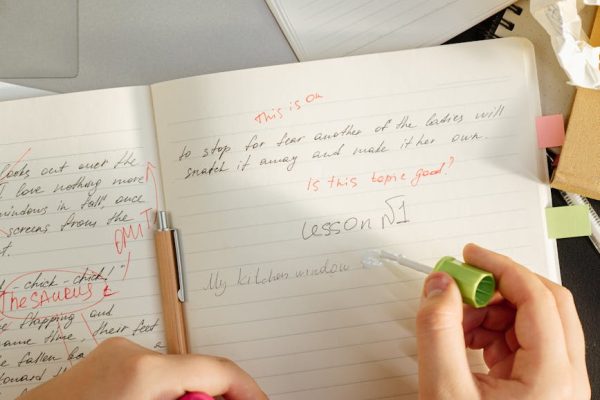 looks out over the
I love nothing more
windows in fall, once
screens from the
OMIT
chick-chick!"
Thesaurus
flapping and
same time, their feet
fallen
toward
This is OK
to stop for fear another of the ladies will
snatch it away and make it her own.
Is this topic good?
Lesson №1
My kitchen window